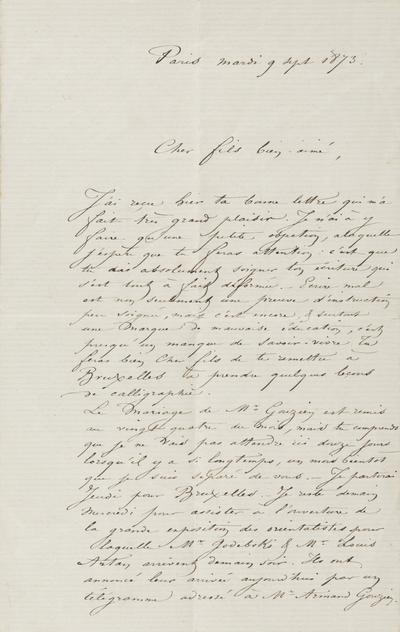 Paris mardi 9 sept 1873.
Cher fils bien-aimé,
J'ai reçu hier ta bonne lettre qui m'a
fait très grand plaisir. Je n'ai à y
faire qu'une petite objection, à laquelle
j'espère que tu feras attention: c'est que
tu dois absolument soigner ton écriture qui
s'est tout à fait déformée. Ecrire mal
est non seulement une preuve d'instruction
peu soignée, mais c'est encore, & surtout
une marque de mauvaise éducation, c'est
presqu'un manque de savoir-vivre. Tu
feras bien Cher fils de te remettre à
Bruxelles à prendre quelques leçons
de calligraphie.
Le Mariage de Mr Gouzien est remis
au vingt quatre du mois, mais tu comprends
que je ne vais pas attendre ici douze jours
lorsqu'il y a si longtemps, un mois bientôt
que je suis séparé de vous. Je partirai
Jeudi pour Bruxelles. Je reste demain
Mercredi pour assister à l'ouverture de
la grande exposition des orientalistes pour
laquelle Mr Godebski & Mr Louis
Artan arrivent demain soir. Ils ont
annoncé leur arrivée aujourd'hui par un
télégramme adressé à Mr Armand Gouzien.